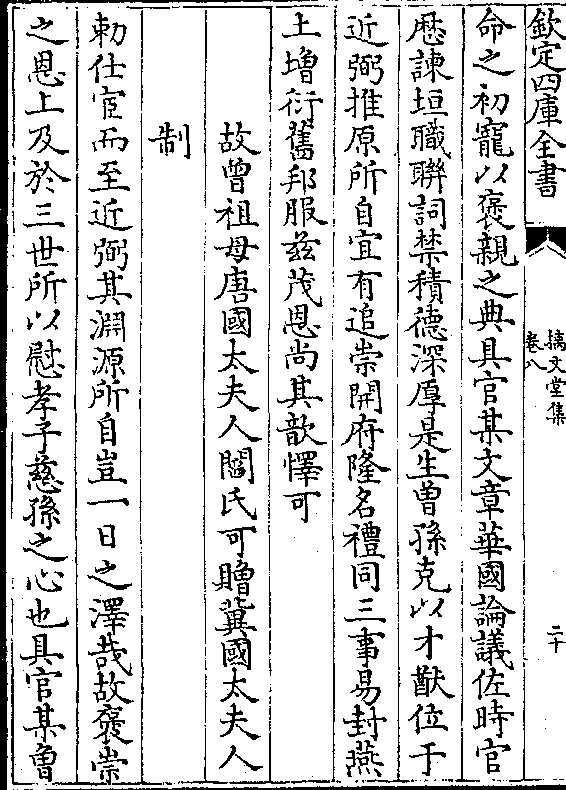 欽定四庫全書
摛文堂集
卷八
二十
命之初寵以褒親之典具官某文章華國論議佐時官
歴諫垣職聯詞禁積德深厚是生曽孫克以才猷位于
近弼推原所自宜有追崇開府隆名禮同三事易封燕
土增衍舊邦服兹茂恩尚其歆懌可
故曽祖母唐國太夫人閻氏可贈冀國太夫人
制
勅仕宦而至近弼其淵源所自豈一日之澤哉故褒崇
之恩上及於三世所以慰孝子慈孫之心也具官某曽